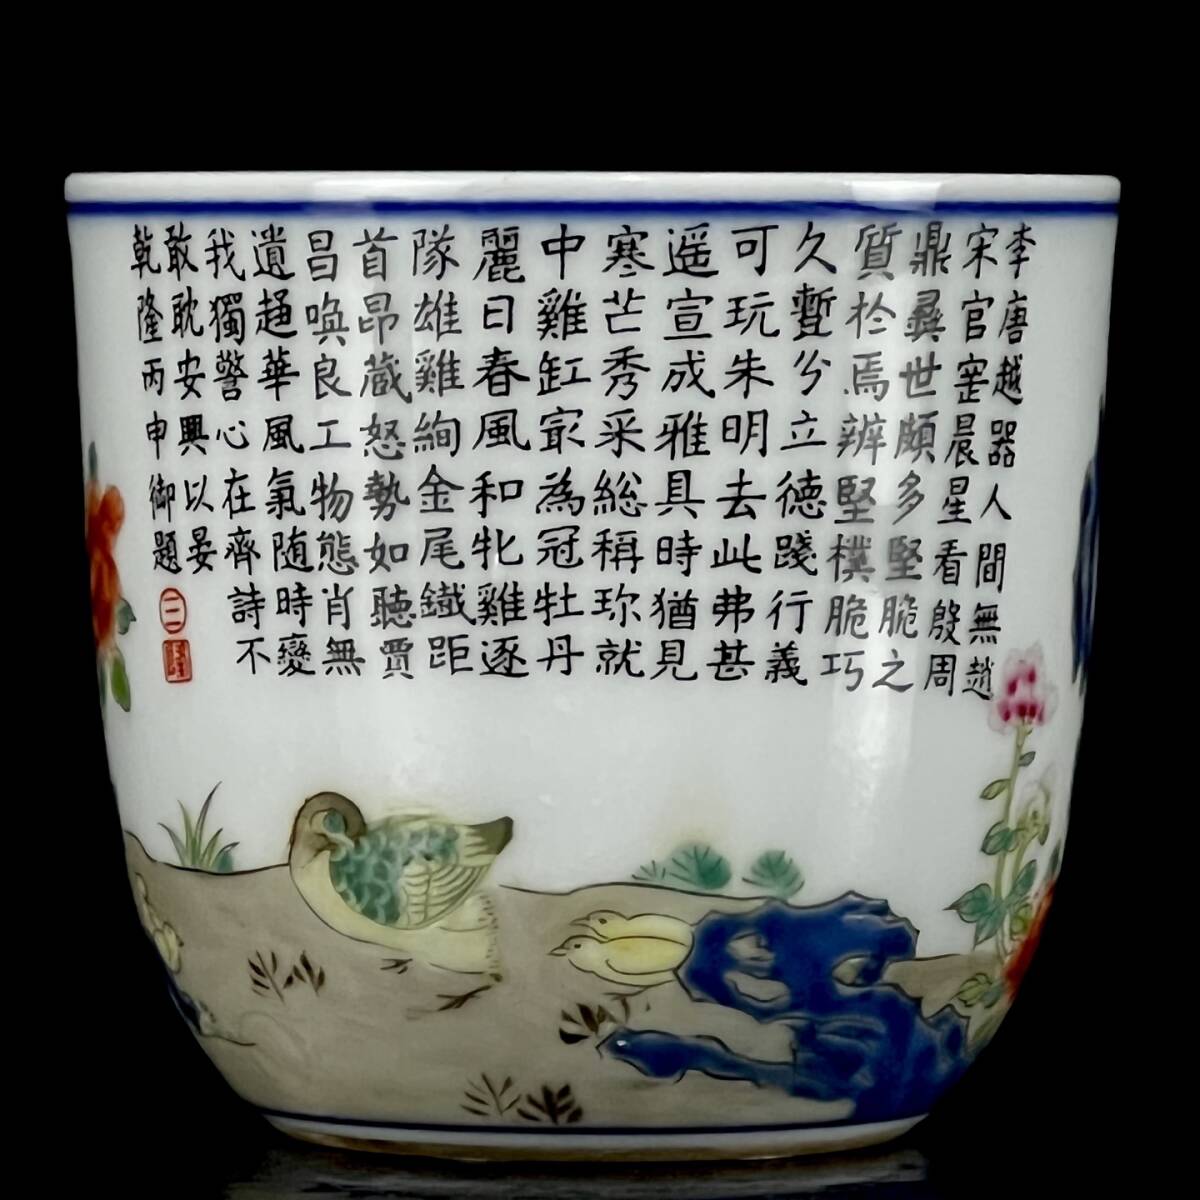 李唐越器人間無趙
宋官窰晨星看殷周
鼎彝世頗多堅脆之
質於焉辨堅樸脆巧
久暫分立德踐行義
可玩朱明去此弗甚
遥宣成雅具時猶見
寒芒秀采総稱珎就
中雞缸冣為冠牡丹
麗日春風和牝雞逐
隊雄雞絢金尾鐡距
首昂藏怒勢如聽賈
昌喚良工物態肖無
遺趨華風氣随時變
我獨警心在齊詩不
敢耽安興以晏
乾隆丙申御題
三